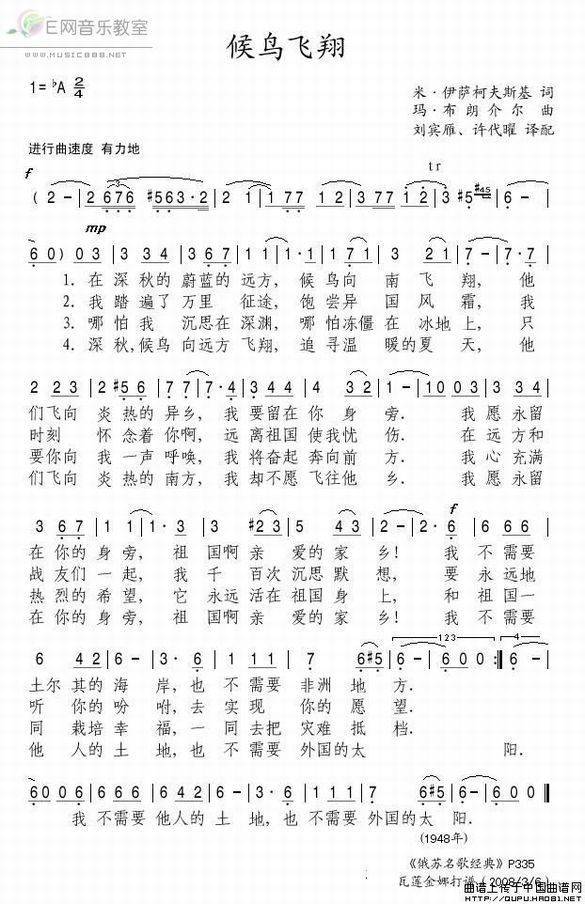 E网音乐教室
www.music888.net
候鸟飞翔
1=♭A 2/4
米·伊萨柯夫斯基 词
玛·布朗介尔 曲
刘宾雁、许代曜 译配
进行曲速度 有力地
f
tr
(2 - | 2 676 | #563·2 | 2 1 | 177 | 122 | 377 | 12 | 3 #5 #45
mp
60) 03 | 3 34 | 367 | 1 1 | 1·1 | 171 | 3 21 | 7 - | 7·7 |
1. 在深秋的 蔚蓝的 远方, 候鸟向 南飞 翔, 他
2. 我踏遍了 万里 征途, 饱尝异 国风 霜, 我
3. 哪怕我 沉思在 深渊, 哪怕冻僵在 冰地上, 只
4. 深秋,候鸟 向远方 飞翔, 追寻温 暖的夏 天, 他
2 23 | 2 #56 | 77 | 7·6 | 3 34 | 4 32 | 1 - | 1003 | 3 34 |
们飞向 炎热的 异乡, 我 要留在 你身 旁. 我愿永留
时刻 怀念着 你啊, 远 离祖国 使我忧 伤. 在远方和
要你向 我一声 呼唤, 我 将奋起 奔向前 方. 我心充满
们飞向 炎热的 南方, 我 却不愿 飞往他 乡. 我愿永留
f
3 67 | 1 1 | 1·3 | #23 | 5 43 | 2 - | 2·6 | 6 66 |
在你的 身旁, 祖 国啊亲 爱的家 乡! 我 不需要
战友们 一起, 我 千百次 沉思默 想, 要 永远地
热烈的 希望, 它 永远活 在祖国身 上, 和 祖国一
在你的 身旁, 祖 国啊亲 爱的家 乡! 我 不需要
123 4
6 42 | 6 - | 3·6 | 1 11 | 7 | 6#5 | 6 - | 600 :‖ 6 - |
土尔其的海 岸,也 不需要 非洲 地 方.
听你的吩 咐,去 实现 你的 愿 望.
同栽培幸 福,一 同去把 灾难 抵 档.
他人的土 地,也 不需要 外国的太 阳.
6006 | 6 66 | 6 42 | 6 - | 3·6 | 111 | 7 6#5 | 6 - | 600 ‖
我 不需要 他人的 土 地,也 不需要 外国的太 阳.
(1948年)
《俄苏名歌经典》P335
瓦莲金娜打谱(2008/3/6)
曲谱上传于中国曲谱网
http://QUPU.HAO81.NET